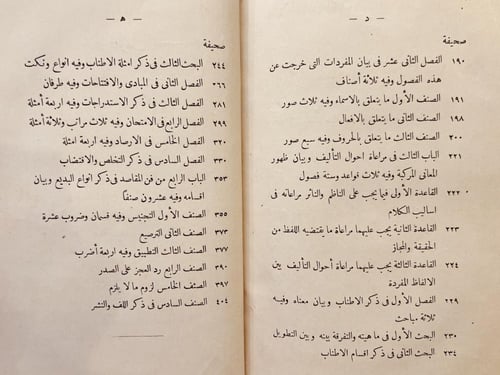 — د —
صحيفة
١٩٠ الفصل الثانى عشر فى بيان المفردات التى خرجت عن
هذه الفصول وفيه ثلاثة أصناف
١٩١ الصنف الأول ما يتعلق بالاسماء وفيه ثلاث صور
١٩٨ الصنف الثانى ما يتعلق بالافعال
٢٠٠ الصنف الثالث ما يتعلق بالحروف وفيه سبع صور
٢٢١ الباب الثالث فى مراعاة احوال التأليف وبيان ظهور
المعانى المركبة وفيه ثلاث قواعد وستة فصول
٢٢٢ القاعدة الأولى فيما يجب على الناظم والناثر مراعاته فى
اساليب الكلام
٢٢٣ القاعدة الثانية يجب عليهما مراعاة ما يقتضيه اللفظ من
الحقيقة والمجاز
٢٢٤ القاعدة الثالثة يجب عليهما مراعاة أحوال التأليف بين
الالفاظ المفردة
٢٢٩ الفصل الأول فى ذكر الاطناب وبيان معناه وفيه
ثلاثة مباحث
٢٣٠ البحث الأول فى ماهيته والتفرقة بينه وبين التطويل
٢٣٤ البحث الثانى فى ذكر اقسام الاطناب
— ه —
صحيفة
٢٤٤ البحث الثالث فى ذكر امثلة الاطناب وفيه انواع ونكت
٢٦٦ الفصل الثانى فى المبادى والافتتاحات وفيه طرفان
٢٨١ الفصل الثالث فى ذكر الاستدراجات وفيه اربعة أمثلة
٢٩٩ الفصل الرابع فى الامتحان وفيه ثلاث مراتب وثلاثة أمثلة
٣٢٠ الفصل الخامس فى الارصاد وفيه اربعة امثلة
٣٣٠ الفصل السادس فى ذكر التخلص والاقتضاب
٣٥٣ الباب الرابع من فن المقاصد فى ذكر انواع البديع وبيان
اقسامه وفيه عشرون صنفا
٣٥٥ الصنف الأول التجنيس وفيه قسمان وضروب عشرة
٣٧٣ الصنف الثانى الترصيع
٣٧٧ الصنف الثالث التطبيق وفيه اربعة أضرب
٣٩٠ الصنف الرابع رد العجز على الصدر
٣٩٧ الصنف الخامس لزوم ما لا يلزم
٤٠٤ الصنف السادس فى ذكر اللف والنشر